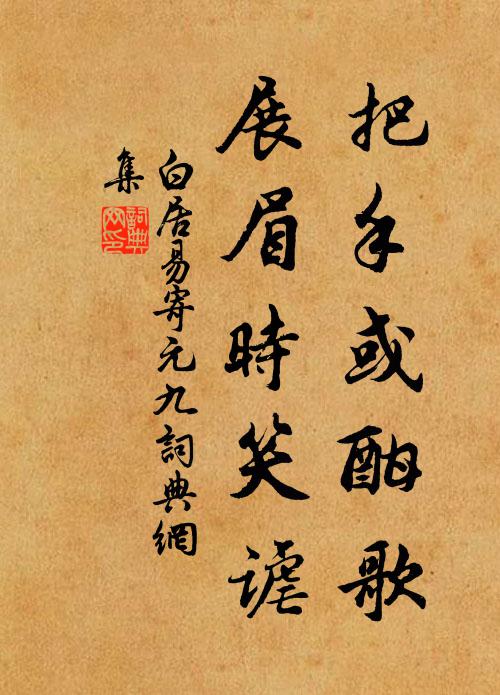 把手或酣歌
展眉時笑謔
白居易寄元九詞典網
集
詞典網印